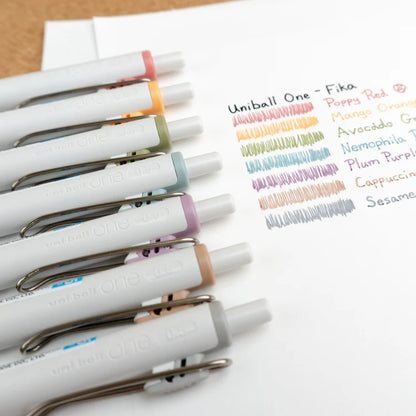 Uniball One - Fika
Poppy Red
Mango Orang
Avocado Gr
Nemophila
Plum Purple
Cappuccin
Sesame
uni ball one
uni ball one
uni ball one
uni ball one
uni ball one